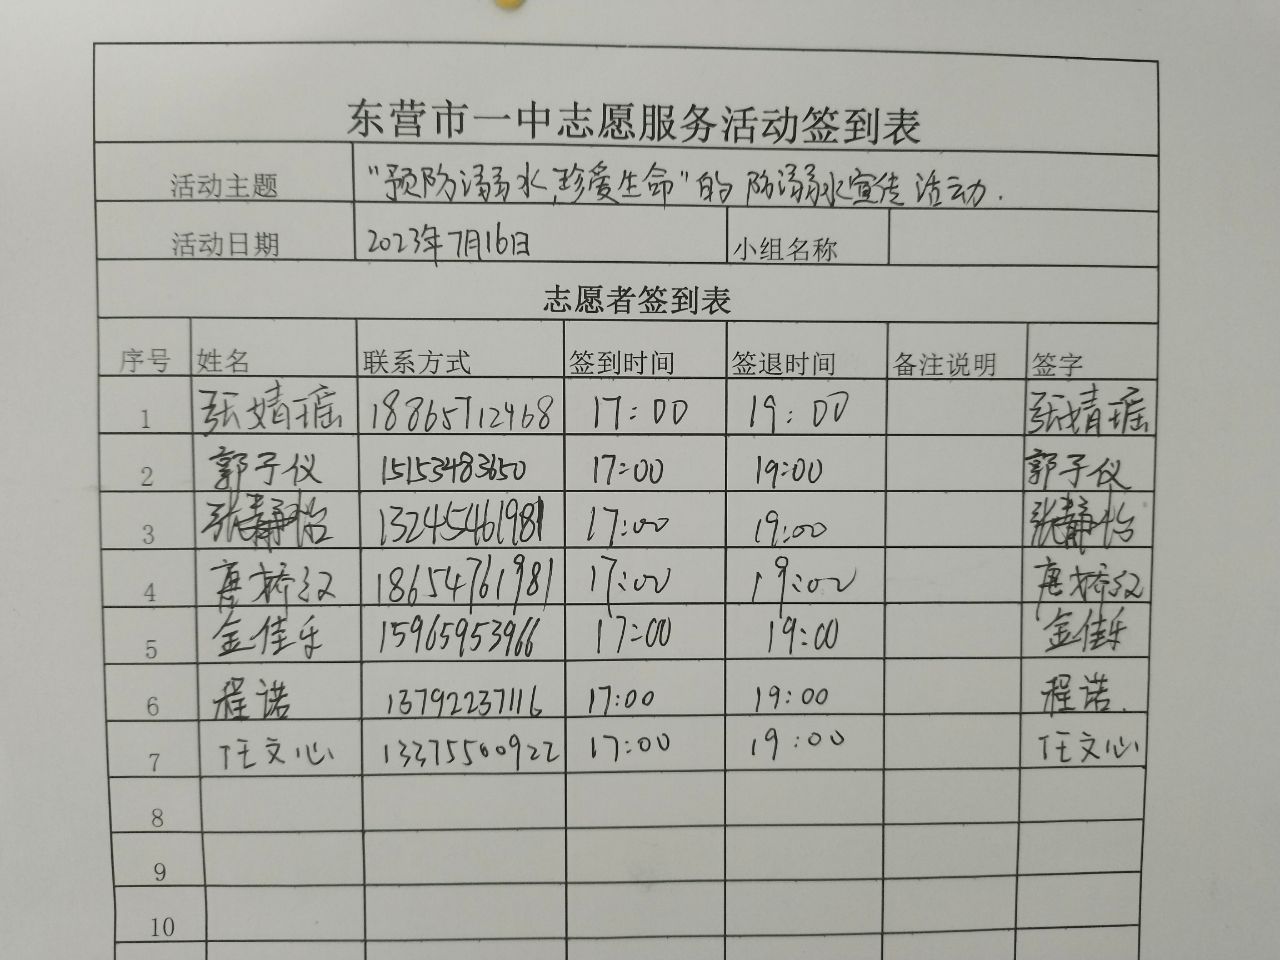 东营市一中志愿服务活动签到表
活动主题 “预防溺水,珍爱生命”的防溺水宣传活动.
活动日期 2023年7月16日 小组名称
志愿者签到表
序号 姓名 联系方式 签到时间 签退时间 备注说明 签字
1 张婧瑶 18865712468 17:00 19:00 张婧瑶
2 郭子仪 15153483650 17:00 19:00 郭子仪
3 张静怡 13245461981 17:00 19:00 张静怡
4 唐娇汉 18654761981 17:00 19:00 唐娇汉
5 金佳乐 15965953966 17:00 19:00 金佳乐
6 程诺 13792237116 17:00 19:00 程诺.
7 任文心 13375500922 17:00 19:00 任文心
8
9
10